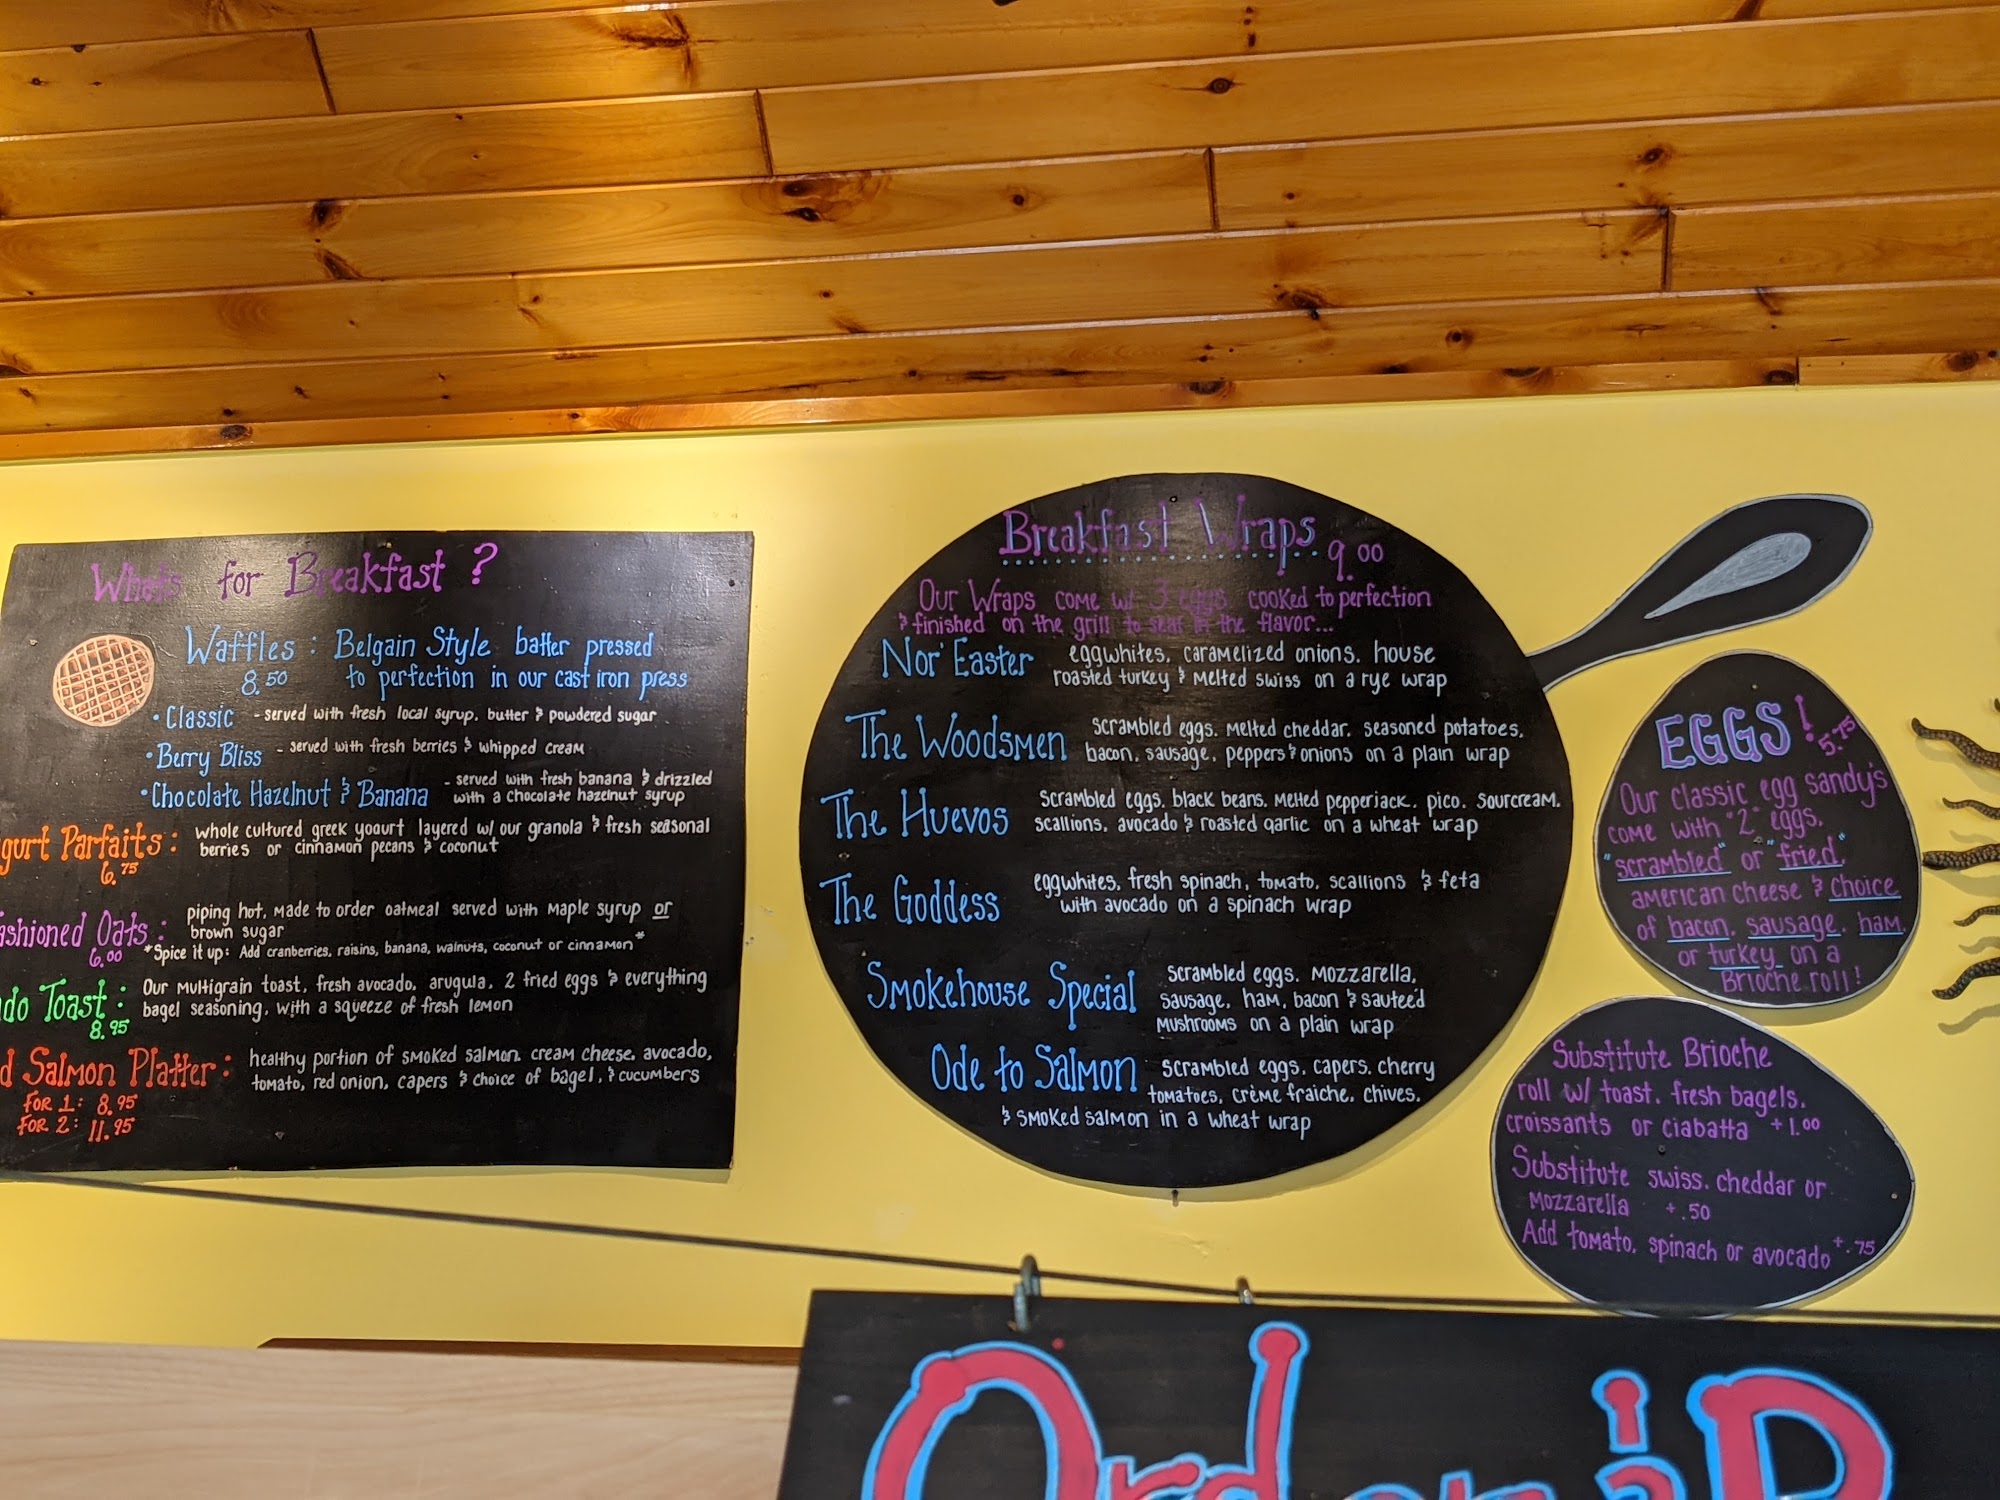 What's for Breakfast?
Waffles: Belgain Style batter pressed
8.50 to perfection in our cast iron press
• Classic - served with fresh local syrup, butter & powdered sugar
• Berry Bliss - served with fresh berries & whipped cream
• Chocolate Hazelnut & Banana - served with fresh banana & drizzled
with a chocolate hazelnut syrup
gurt Parfaits: whole cultured greek yogurt layered w/ our granola & fresh seasonal
6.75 berries or cinnamon pecans & coconut
ashioned Oats: piping hot, made to order oatmeal served with maple syrup or
6.00 brown sugar
*Spice it up: Add cranberries, raisins, banana, walnuts, coconut or cinnamon*
do Toast: Our multigrain toast, fresh avocado, arugula, 2 fried eggs & everything
8.95 bagel seasoning, with a squeeze of fresh lemon
d Salmon Platter: healthy portion of smoked salmon, cream cheese, avocado,
tomato, red onion, capers & choice of bagel, & cucumbers
For 1: 8.95
For 2: 11.95
Breakfast Wraps 9.00
Our Wraps come w/ 3 eggs cooked to perfection
& finished on the grill to sear in the flavor...
Nor'Easter eggwhites, caramelized onions, house
roasted turkey & melted swiss on a rye wrap
The Woodsmen scrambled eggs, melted cheddar, seasoned potatoes,
bacon, sausage, peppers & onions on a plain wrap
The Huevos scrambled eggs, black beans, melted pepperjack, pico, sourcream,
scallions, avocado & roasted garlic on a wheat wrap
The Goddess eggwhites, fresh spinach, tomato, scallions & feta
with avocado on a spinach wrap
Smokehouse Special scrambled eggs, mozzarella,
sausage, ham, bacon & sauteed
mushrooms on a plain wrap
Ode to Salmon scrambled eggs, capers, cherry
tomatoes, crème fraiche, chives,
& smoked salmon in a wheat wrap
EGGS! 5.75
Our classic egg sandy's
come with "2" eggs,
"scrambled" or "fried"
american cheese & choice
of bacon, sausage, ham,
or turkey on a
Brioche roll!
Substitute Brioche
roll w/ toast, fresh bagels,
croissants or ciabatta +1.00
Substitute swiss, cheddar or
mozzarella +.50
Add tomato, spinach or avocado +.75